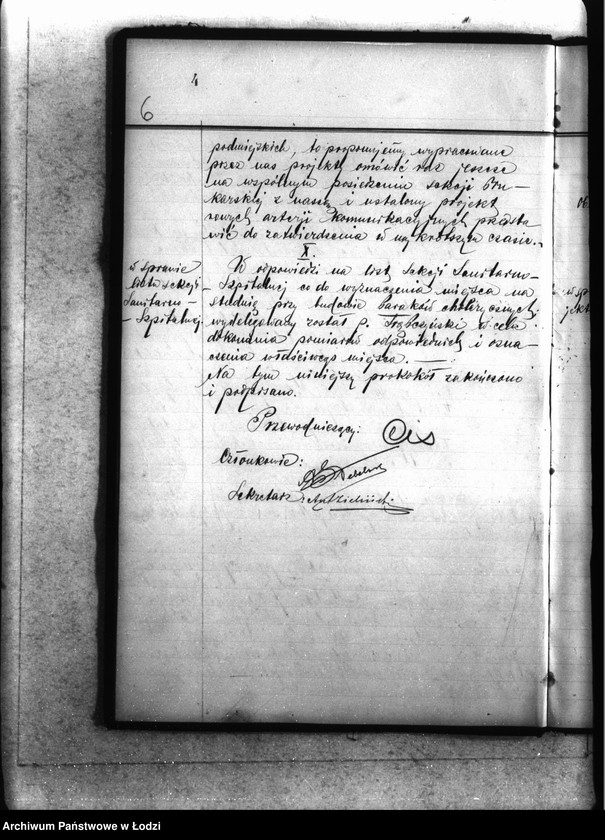 4
6
podmiejskich, to proponujemy wypracowane
przez nas projekty omówić raz jeszcze
na wspólnym posiedzeniu sekcji Bru-
karskiej z naszą i ustalony projekt
nowych arterji komunikacyjnych przedsta-
wić do zatwierdzenia w najkrótszym czasie.
X.
w sprawie
listu Sekcji
Sanitarno-
-Szpitalnej.
W odpowiedzi na list Sekcji Sanitarno-
-Szpitalnej co do wyznaczenia miejsca na
studnię przy budowie baraków cholerycznych,
wydelegowany został p. w celu
dokonania pomiarów odpowiednich i ozna-
czenia właściwego miejsca. —
Na tym niniejszy protokół zakończono
i podpisano.
Przewodniczący: Cis
Członkowie:
Sekretarz:
w sp
Archiwum Państwowe w Łodzi